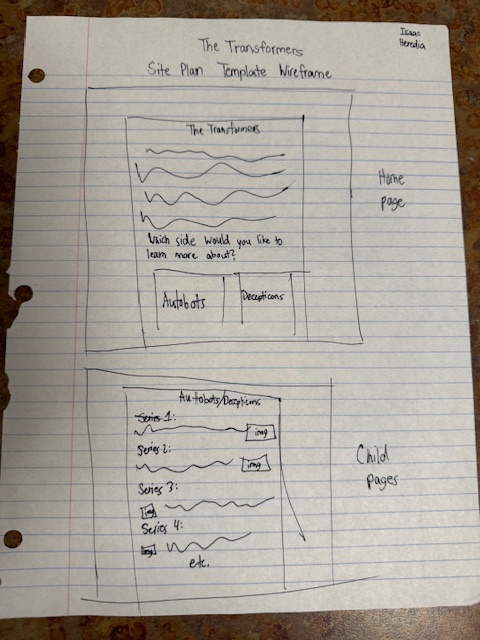 Isaac
Heredia
The Transformers
Site Plan Template Wireframe
The Transformers
Home
page
Which side would you like to
learn more about?
Autobots
Decepticons
Autobots/Decepticons
Series 1:
img
Series 2:
img
Child
pages
Series 3:
img
Series 4:
img
etc.